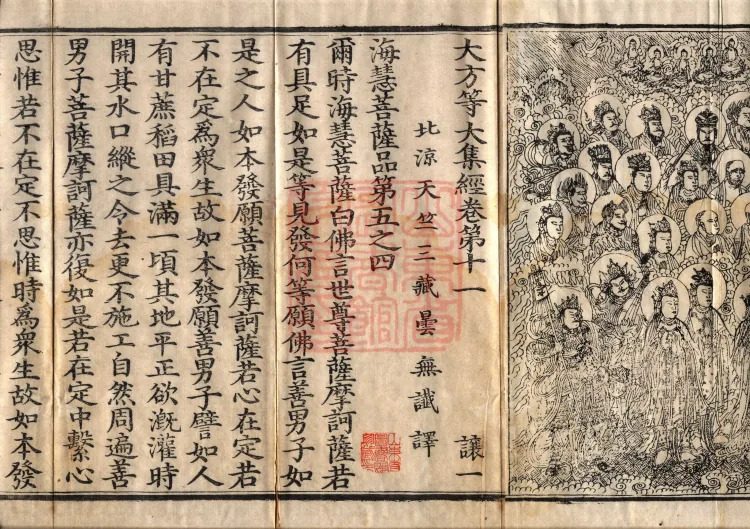 大方等大集經卷第十一　讓一
北涼天竺三藏曇無讖譯
海慧菩薩品第五之四
爾時海慧菩薩白佛言世尊菩薩摩訶薩若
有具足如是等見發何等願佛言善男子如
是之人如本發願菩薩摩訶薩若心在定若
不在定爲衆生故如本發願善男子譬如人
有甘蔗稻田具滿一頃其地平正欲漑灌時
開其水口縱之令去更不施工自然周遍善
男子菩薩摩訶薩亦復如是若在定中繫心
思惟若不在定不思惟時爲衆生故如本發